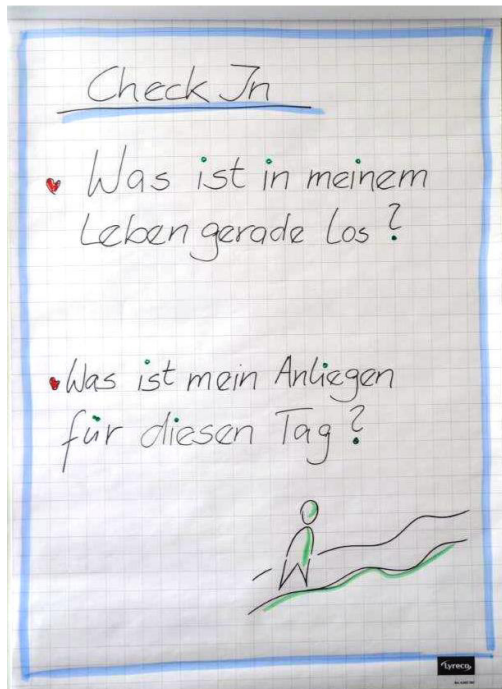 Check In
Was ist in meinem
Leben gerade los?
Was ist mein Anliegen
für diesen Tag?
Lyreco